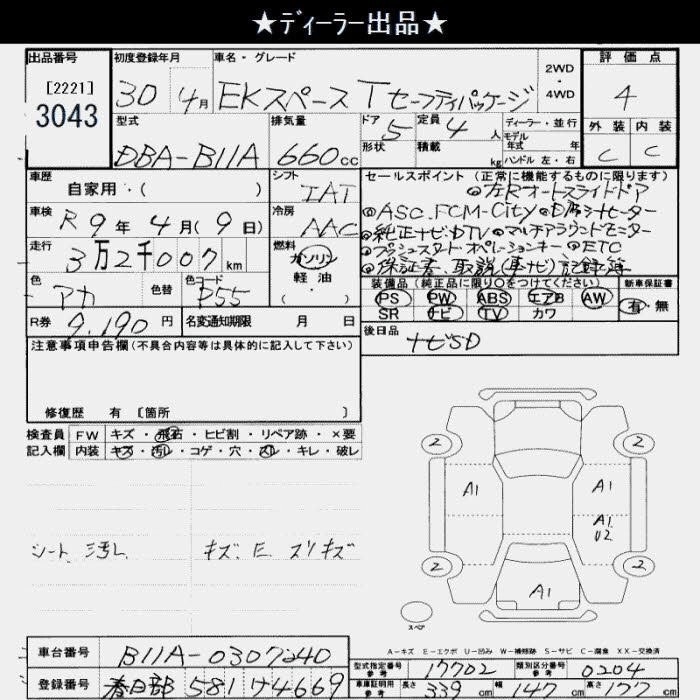 ★ディーラー出品★
出品番号 初度登録年月 車名・グレード 2WD・4WD 評価点
[2221] 3043 30 4月 EKスペース Tセーフティパッケージ 4
型式 排気量 ドア 5 定員 4人 ディーラー・並行 外装 内装
DBA-B11A 660cc 形状 積載 kg モデル年式 年 ハンドル 左・右 C C
車歴 シフト セールスポイント(正常に機能するものに限ります)
自家用・( ) IAT ◎左Rオートスライドドア
車検 冷房 ◎ASC.FCM-City ◎D席シートヒーター
R9年4月(9日) AAC ◎純正ナビDTV ◎マルチアラウンドモニター
走行 燃料 ◎プッシュスタートオペレーションキー ◎ETC
3万2千007km ガソリン ◎保証書、取説(車ナビ)記録簿
軽油
・( )
色 色替 色コード 装備品(純正品に限り○をつけてください) 新車保証書
アカ P55 PS PW ABS エアB AW 有・無
SR ナビ TV カワ
R券 9,190円 名変通知期限 月 日 後日品 ナビSD
注意事項申告欄(不具合内容等は具体的に記入して下さい)
修復歴 有 [箇所 ]
検査員 FW キズ・飛石・ヒビ割・リペア跡・×要
記入欄 内装 キズ・汚れ・コゲ・穴・スレ・キレ・破レ
2 2
A1 A1
A1
U2
シート汚し キズ、E、スリキズ
2 2
A1
スペア
A-キズ E-エクボ U-凹み W-補修跡 S-サビ C-腐食 XX-交換済
車台番号 B11A-0307240 型式指定番号 参考 17702 類別区分番号 参考 0204
登録番号 春日部 581 け 4669 車庫証明用 参考 長さ 339cm 幅 147cm 高さ 177cm